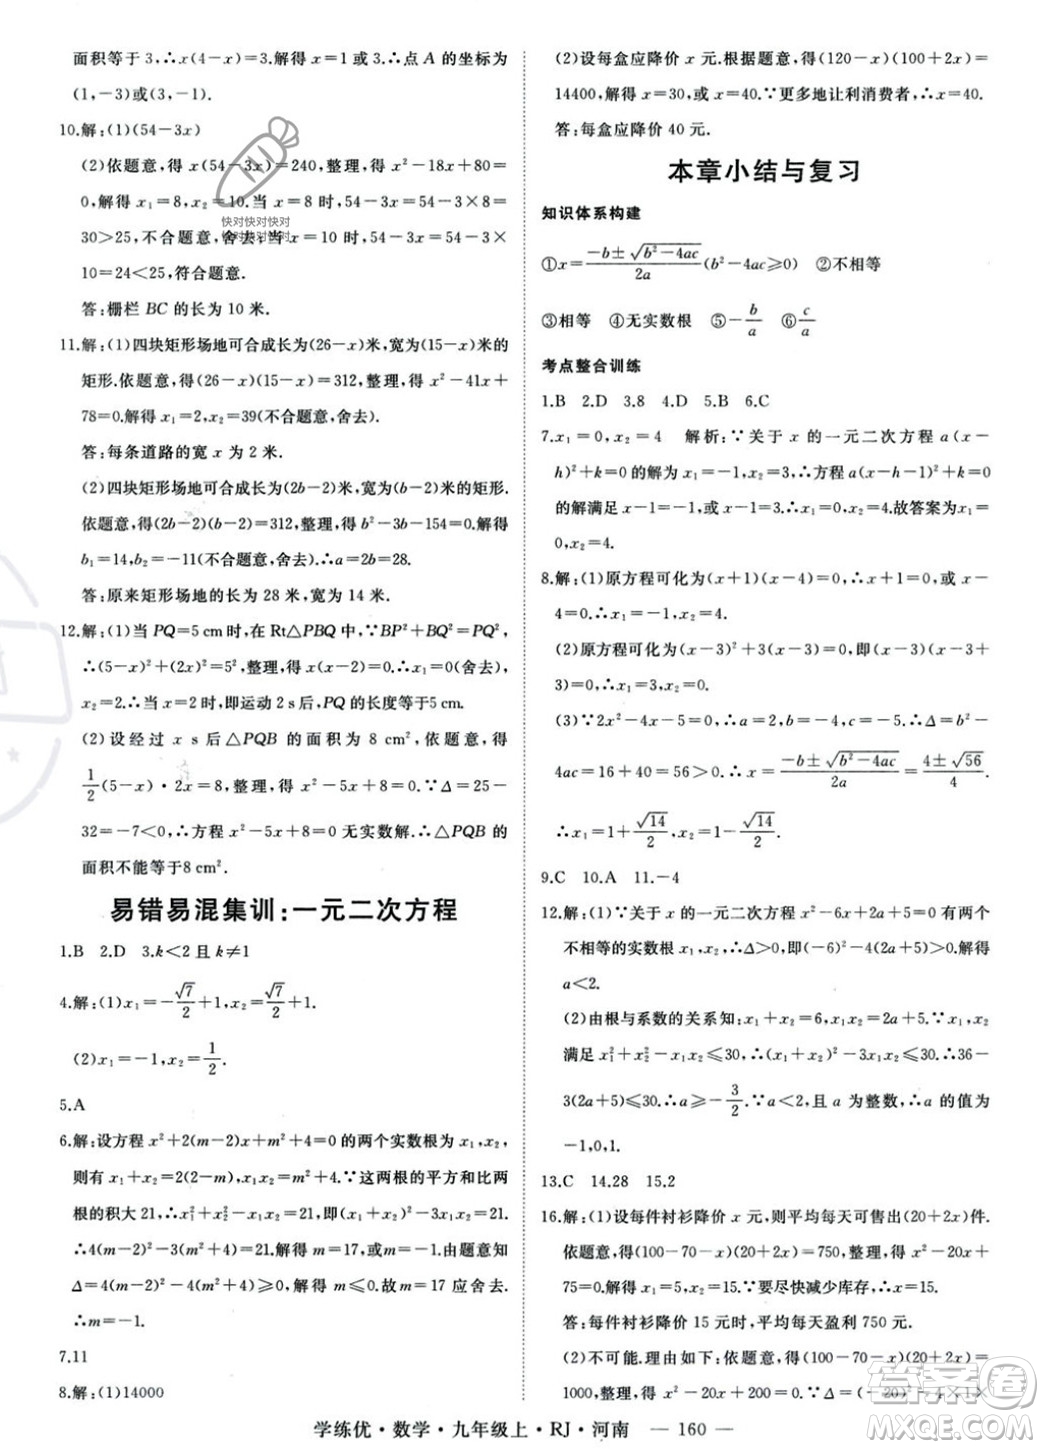 面积等于 3,∴x(4-x)=3.解得 x=1或3.∴点 A 的坐标为
(1,-3)或(3,-1).
10.解:(1)(54-3x)
(2)依题意,得 x(54-3x)=240,整理,得 x²-18x+80=
0,解得 x₁=8,x₂=10.当 x=8 时,54-3x=54-3×8=
30>25,不合题意,舍去;当 x=10 时,54-3x=54-3×
10=24<25,符合题意.
答:栅栏 BC 的长为 10 米.
11.解:(1)四块矩形场地可合成长为(26-x)米,宽为(15-x)米的
矩形.依题意,得(26-x)(15-x)=312,整理,得 x²-41x+
78=0.解得 x₁=2,x₂=39(不合题意,舍去).
答:每条道路的宽 x 为 2 米.
(2)四块矩形场地可合成长为(2b-2)米,宽为(b-2)米的矩形.
依题意,得(2b-2)(b-2)=312,整理,得 b²-3b-154=0.解得
b₁=14,b₂=-11(不合题意,舍去).∴a=2b=28.
答:原来矩形场地的长为 28 米,宽为 14 米.
12.解:(1)当 PQ=5 cm时,在 Rt△PBQ 中,∵BP²+BQ²=PQ²,
∴(5-x)²+(2x)²=5²,整理,得 x²-2x=0.解得 x₁=0(舍去),
x₂=2.∴当 x=2时,即运动 2 s后,PQ的长度等于5 cm.
(2)设经过 x s 后△PQB 的面积为 8 cm²,依题意,得
1/2(5-x)·2x=8,整理,得 x²-5x+8=0.∵Δ=25-
32=-7<0,∴方程 x²-5x+8=0 无实数解.∴△PQB 的
面积不能等于8 cm².
易错易混集训:一元二次方程
1.B 2.D 3.k<2 且 k≠1
4.解:(1)x₁=-√7/2+1,x₂=√7/2+1.
(2)x₁=-1,x₂=1/2.
5.A
6.解:设方程 x²+2(m-2)x+m²+4=0 的两个实数根为 x₁,x₂,
则有 x₁+x₂=2(2-m),x₁x₂=m²+4.∵这两根的平方和比两
根的积大 21,∴x₁²+x₂²-x₁x₂=21,即(x₁+x₂)²-3x₁x₂=21,
∴4(m-2)²-3(m²+4)=21,解得 m=17或-1.由题意可知
Δ=4(m-2)²-4(m²+4)≥0,解得 m≤0.故 m=17 应舍去.
∴m=-1.
7.11
8.解:(1)14000
(2)设每盒应降价 x 元.根据题意,得(120-x)(100+2x)=
14400,解得 x=30,或x=40.∵更多地让利消费者,∴x=40.
答:每盒应降价 40 元.
本章小结与复习
知识体系构建
①x=(-b±√(b²-4ac))/2a(b²-4ac≥0) ②不相等
③相等 ④无实数根 ⑤-b/a ⑥c/a
考点整合训练
1.B 2.D 3.8 4.D 5.B 6.C
7.x₁=0,x₂=4 解析:∵关于 x 的一元二次方程 a(x-
h)²+k=0 的解为 x₁=-1,x₂=3,∴方程 a(x-h-1)²+k=0
的解满足 x-1=-1,或 x-1=3.∴x₁=0,x₂=4.故答案为x₁=
0,x₂=4.
8.解:(1)原方程可化为(x+1)(x-4)=0,∴x+1=0,或x-
4=0.∴x₁=-1,x₂=4.
(2)原方程可化为(x-3)²+3(x-3)=0,即(x-3)(x-3+
3)=0.∴x₁=3,x₂=0.
(3)∵2x²-4x-5=0,∴a=2,b=-4,c=-5.∴Δ=b²-
4ac=16+40=56>0.∴x=(-b±√(b²-4ac))/2a=(4±√56)/4.
∴x₁=1+√14/2,x₂=1-√14/2.
9.C 10.A 11.-4
12.解:(1)∵关于 x 的一元二次方程x²-6x+2a+5=0 有两个
不相等的实数根 x₁,x₂,∴Δ>0,即(-6)²-4(2a+5)>0.解得
a<2.
(2)由根与系数的关系知:x₁+x₂=6,x₁x₂=2a+5.∵x₁,x₂
满足x₁²+x₂²-x₁x₂≤30,∴(x₁+x₂)²-3x₁x₂≤30,∴36-
3(2a+5)≤30.∴a≥-3/2.∵a<2,且 a 为整数,∴a 的值为
-1,0,1.
13.C 14.28 15.2
16.解:(1)设每件衬衫降价 x 元,则平均每天可售出(20+2x)件.
依题意,得(100-70-x)(20+2x)=750,整理,得x²-20x+
75=0.解得 x₁=5,x₂=15.∵要尽快减少库存,∴x=15.
答:每件衬衫降价 15 元时,平均每天盈利 750 元.
(2)不可能.理由如下:依题意,得(100-70-x)(20+2x)=
1000,整理得x²-20x+200=0.
学练优·数学·九年级上·RJ·河南 — 160 —
快对快对快对
快对快对快对